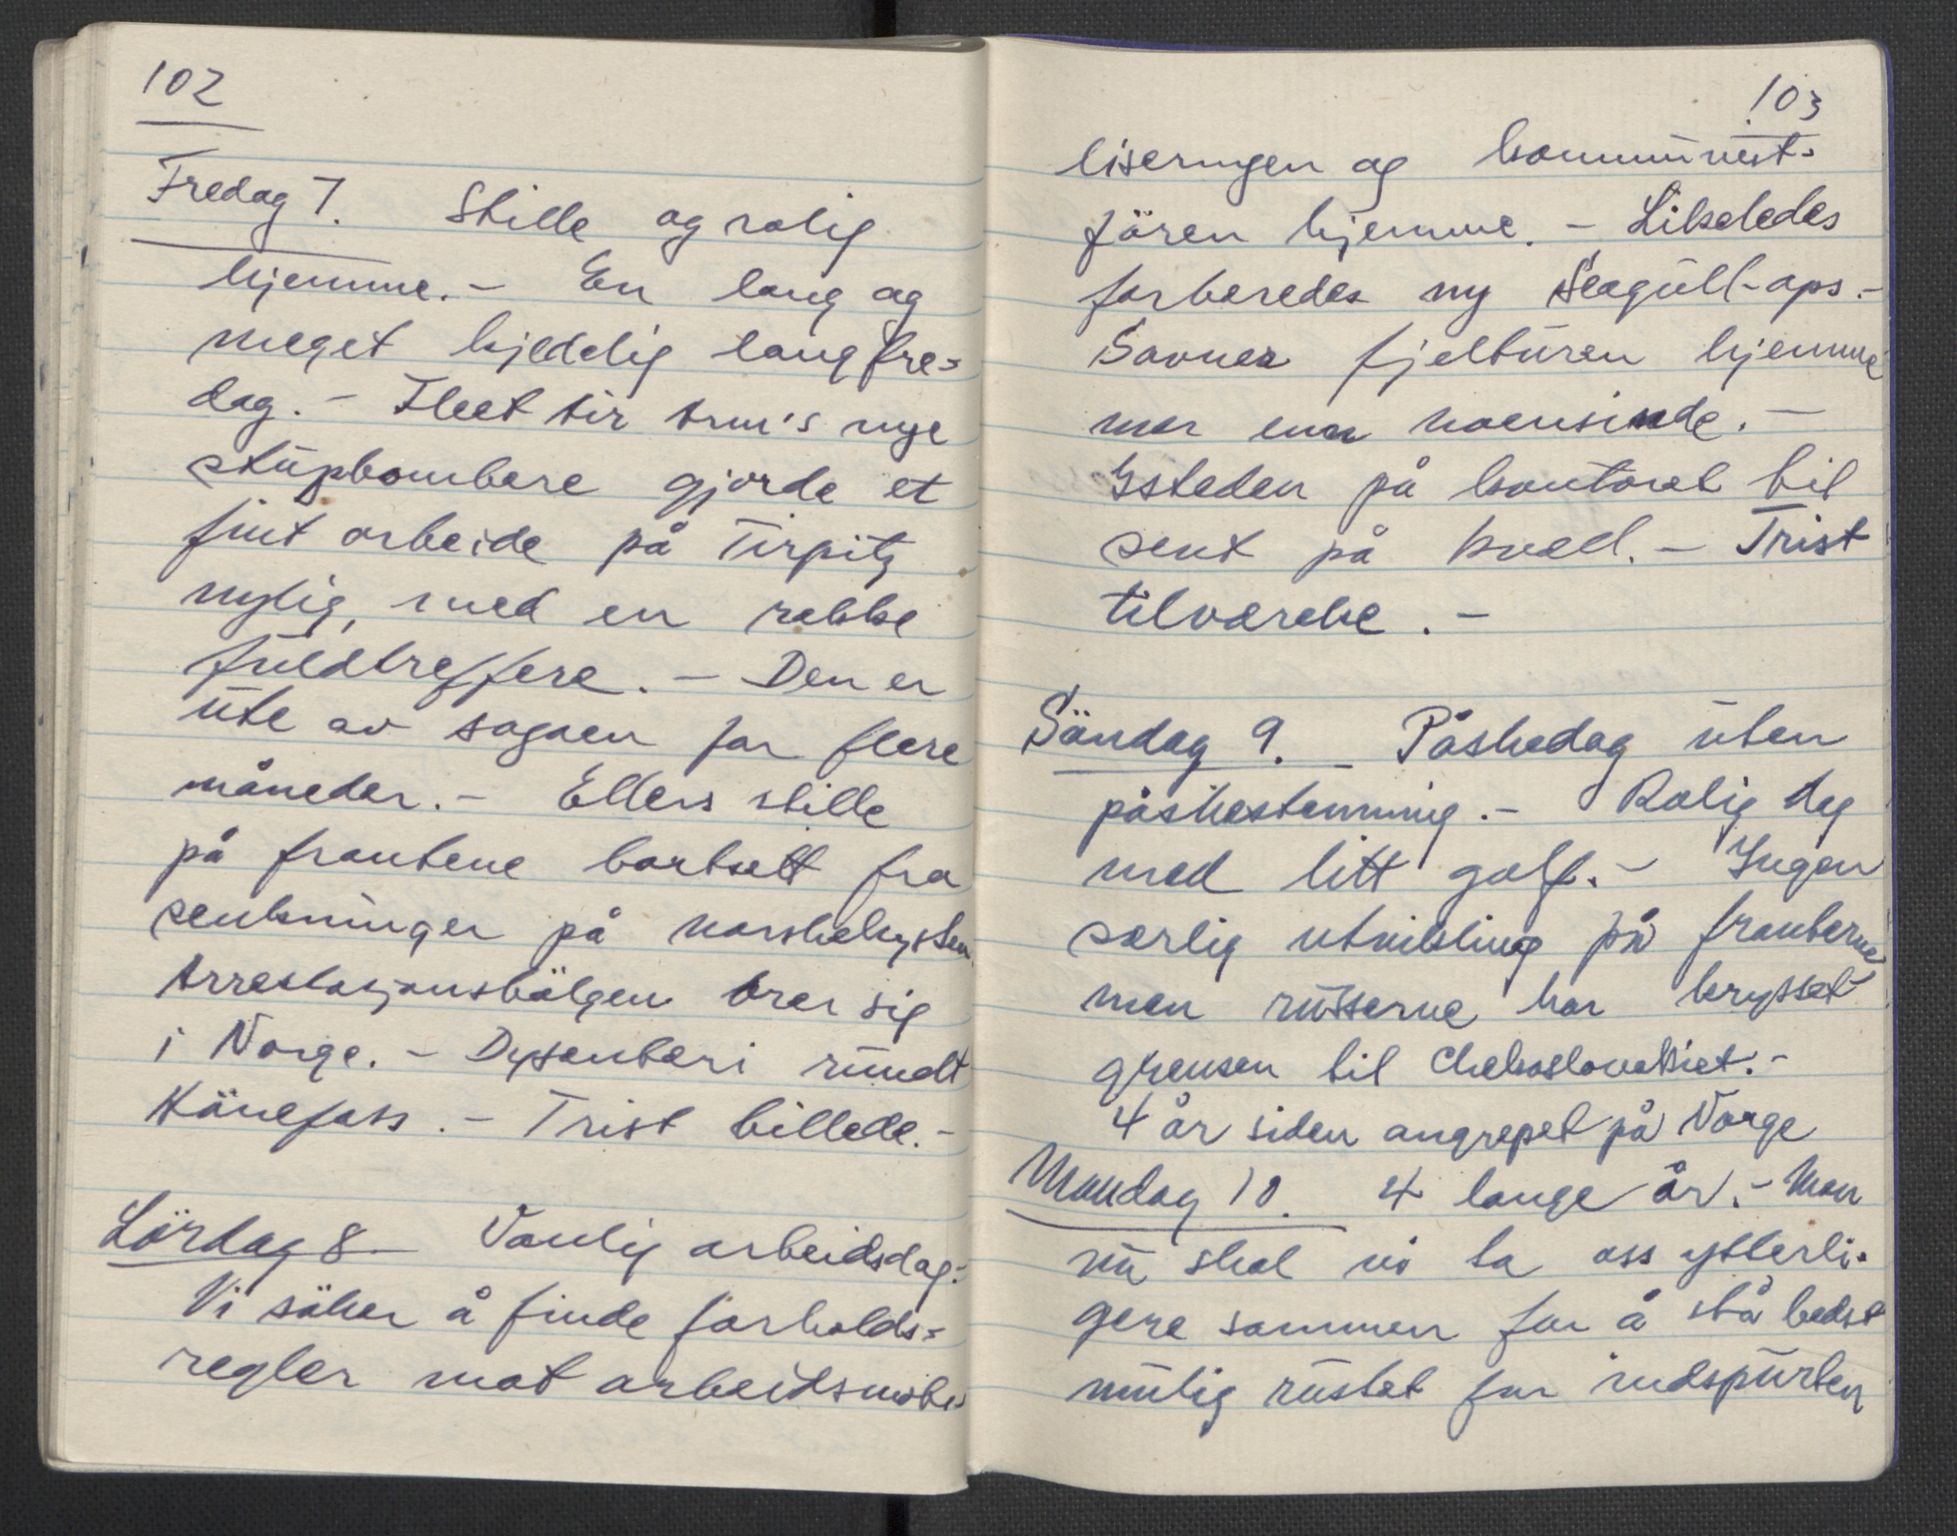 102
Fredag 7. Stille og rolig
hjemme. - En lang og
meget kjedelig langfre=
dag. - Fleet Air Arm's nye
stupbombere gjorde et
fint arbeide på Tirpitz
nylig, med en rekke
fuldtreffere. - Den er
ute av sagaen for flere
måneder. - Ellers stille
på frontene bortsett fra
senkninger på norskekysten.
Arrestasjonsbölgen brer sig
i Norge. - Dysenteri rundt
Hönefoss. - Trist billede. -
Lördag 8 - Vanlig arbeidsdag. -
Vi söker å finde forholds=
regler mot arbeidsmobi=
103
liseringen og kommunist=
fören hjemme. - Likeledes
forberedes ny Seagull-ops. -
Savner fjelturen hjemme
mer enn noensinde. -
Isteden på kontoret til
sent på kveld. - Trist
tilværelse. -
Söndag 9. - Påskedag uten
påskestemning. - Rolig dag
med litt golf. - Ingen
særlig utvikling på fronterne
men russerne har krysset
grensen til Chekoslovakiet. -
4 år siden angrepet på Norge
Mandag 10. 4 lange år. - Men
nu skal vi ta oss ytterli=
gere sammen for å stå bedst
mulig rustet for indspurten